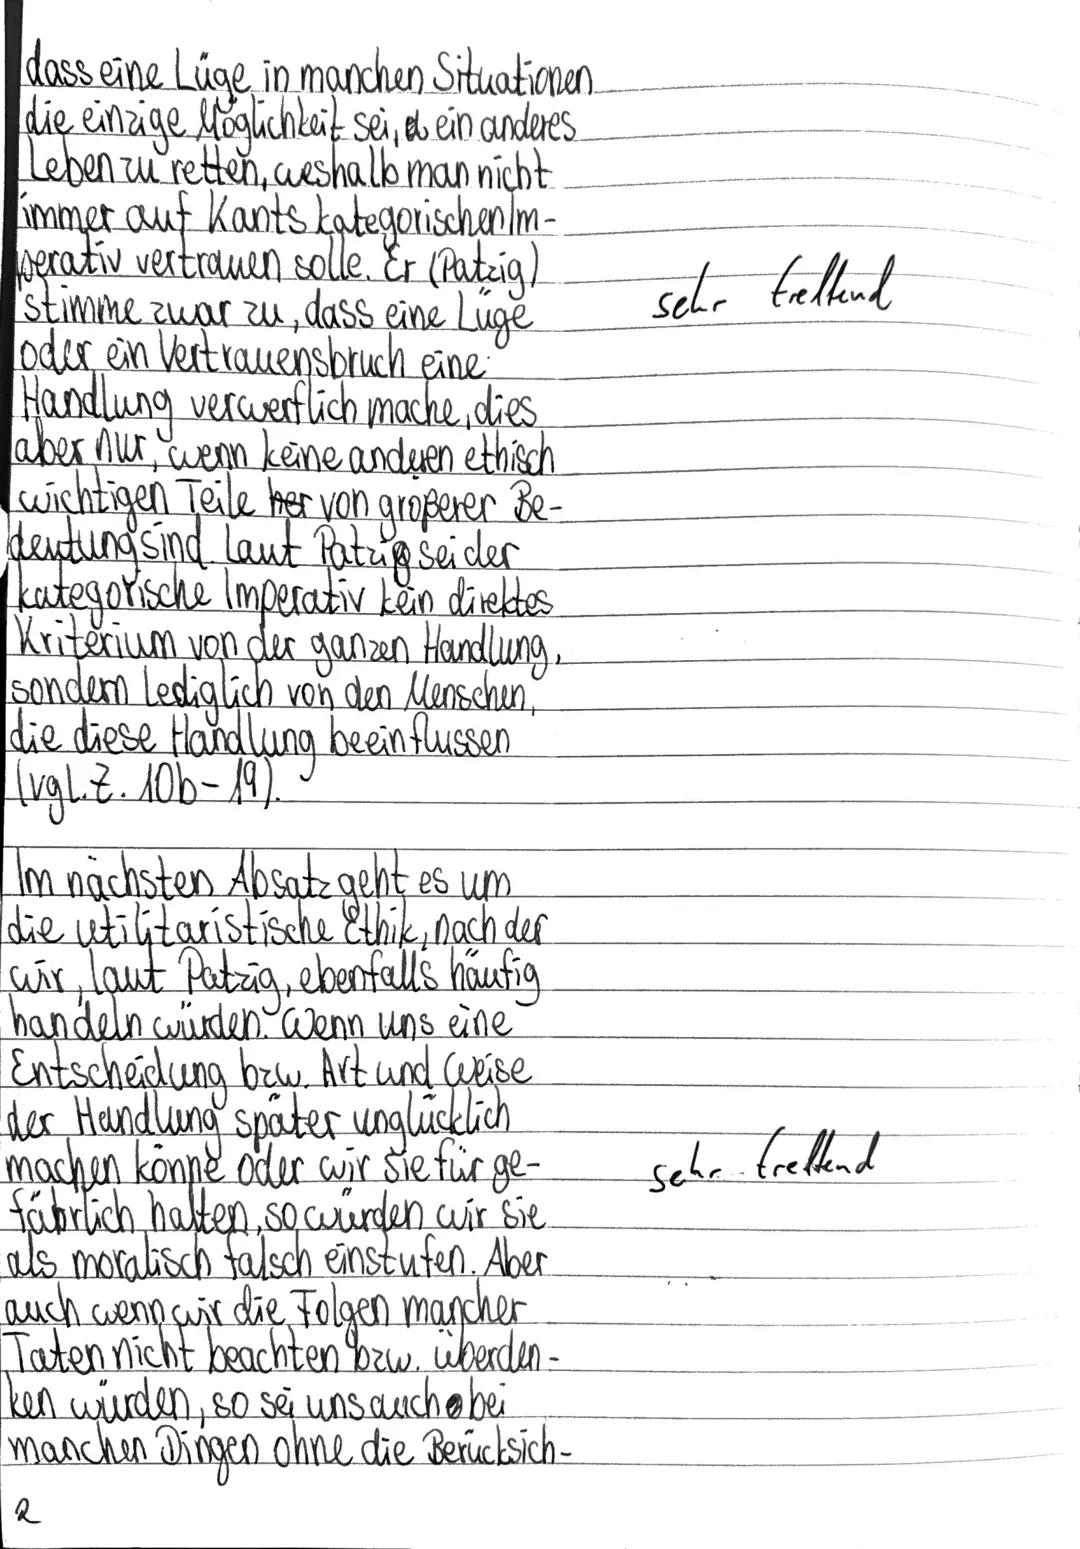 dass eine Lüge in manchen Situationen
die einzige Möglichkeit sei, ein anderes
Leben zu retten, weshalb man nicht
immer auf Kants kategorischen Im-
perativ vertrauen solle. Er (Patzig)
sehr treffend
stimme zwar zu, dass eine Lüge
oder ein Vertrauensbruch eine
Handlung verwerflich mache, dies
aber nur, wenn keine anderen ethisch
wichtigen Teile von größerer Be-
deutung sind. Laut Patzig sei der
kategorische Imperativ kein direktes
Kriterium von der ganzen Handlung,
sondern lediglich von den Menschen,
die diese Handlung beeinflussen
(vgl. Z. 10b-19).
Im nächsten Absatz geht es um
die utilitaristische Ethik, nach der
wir, laut Patzig, ebenfalls häufig
handeln würden. Wenn uns eine
Entscheidung bzw. Art und Weise
der Handlung später unglücklich
machen könne oder wir sie für ge-
sehr treffend
fährlich halten, so würden wir sie
als moralisch falsch einstufen. Aber
auch wenn wir die Folgen mancher
Taten nicht beachten bzw. überden-
ken würden, so sei uns auch bei
manchen Dingen ohne die Berücksich-
2